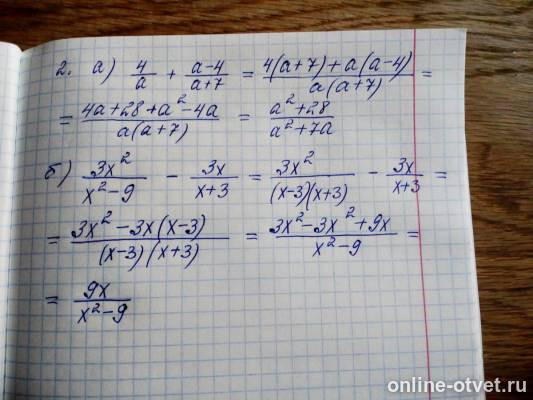 2. а) 4/a + a-4/a+7 = 4(a+7)+a(a-4)/a(a+7) =
= 4a+28+a²-4a/a(a+7) = a²+28/a²+7a
б) 3x²/x²-9 - 3x/x+3 = 3x²/(x-3)(x+3) - 3x/x+3 =
= 3x²-3x(x-3)/(x-3)(x+3) = 3x²-3x²+9x/x²-9 =
= 9x/x²-9
online-otvet.ru